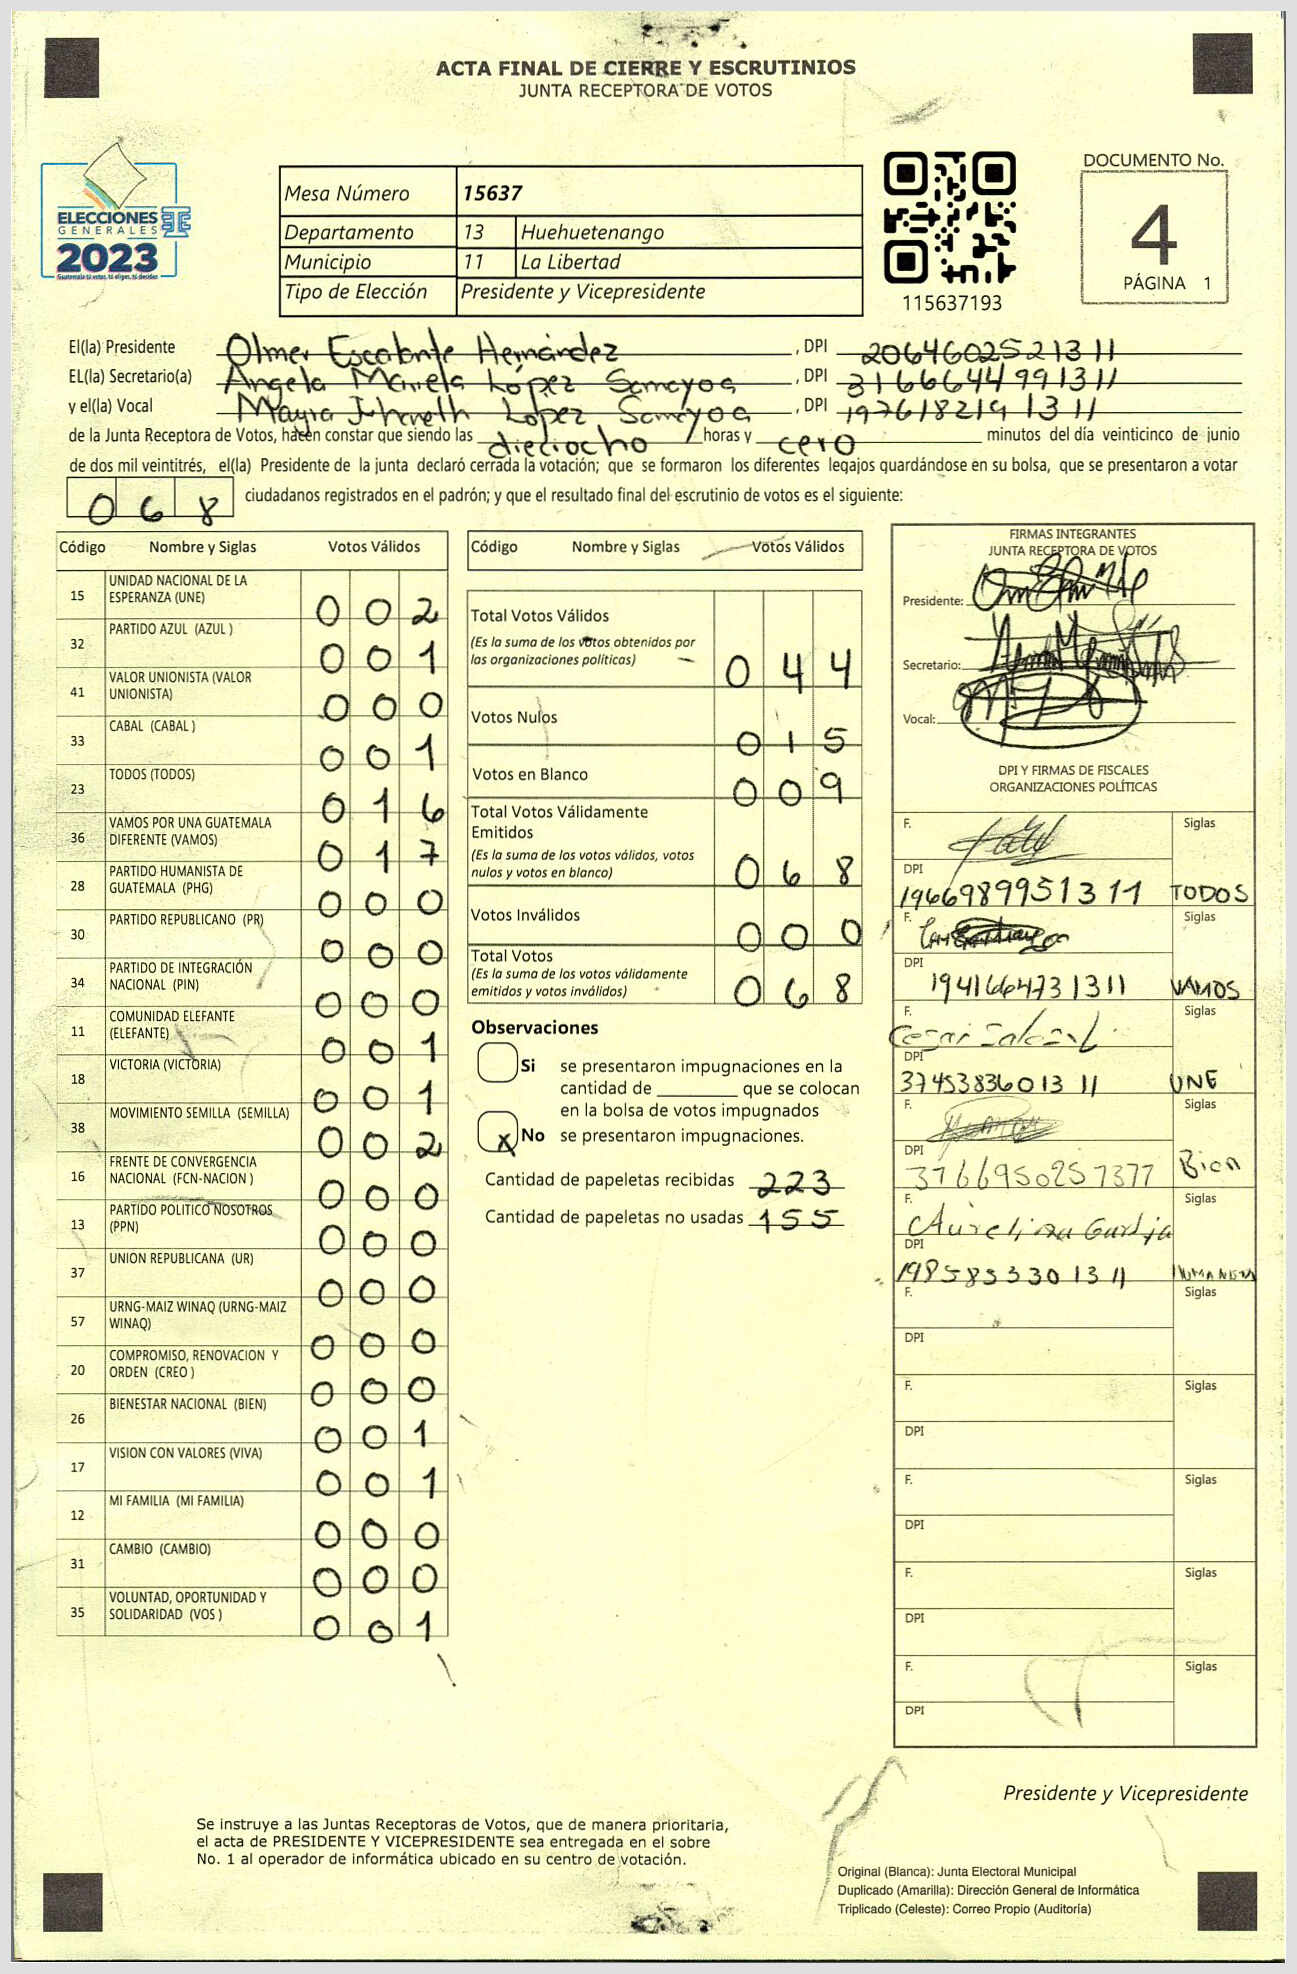 ACTA FINAL DE CIERRE Y ESCRUTINIOS
JUNTA RECEPTORA DE VOTOS
ELECCIONES
GENERALES
2023
Mesa Número 15637
Departamento 13 Huehuetenango
Municipio 11 La Libertad
Tipo de Elección Presidente y Vicepresidente
115637193
DOCUMENTO No.
4
PÁGINA 1
El(la) Presidente Olmer Escalante Hernández, DPI 2064602521311
EL(la) Secretario(a) Angela Mariela López Samayoa, DPI 3166644991311
y el(la) Vocal Mayra Jhaneth López Samayoa, DPI 1976182191311
de la Junta Receptora de Votos, hacen constar que siendo las dieciocho horas y cero minutos del día veinticinco de junio
de dos mil veintitrés, el(la) Presidente de la junta declaró cerrada la votación; que se formaron los diferentes legajos guardándose en su bolsa, que se presentaron a votar
068 ciudadanos registrados en el padrón; y que el resultado final del escrutinio de votos es el siguiente:
Código Nombre y Siglas Votos Válidos
15 UNIDAD NACIONAL DE LA ESPERANZA (UNE) 002
32 PARTIDO AZUL (AZUL ) 001
41 VALOR UNIONISTA (VALOR UNIONISTA) 000
33 CABAL (CABAL ) 001
23 TODOS (TODOS) 016
36 VAMOS POR UNA GUATEMALA DIFERENTE (VAMOS) 017
28 PARTIDO HUMANISTA DE GUATEMALA (PHG) 000
30 PARTIDO REPUBLICANO (PR) 000
34 PARTIDO DE INTEGRACIÓN NACIONAL (PIN) 000
11 COMUNIDAD ELEFANTE (ELEFANTE) 001
18 VICTORIA (VICTORIA) 001
38 MOVIMIENTO SEMILLA (SEMILLA) 002
16 FRENTE DE CONVERGENCIA NACIONAL (FCN-NACION ) 000
13 PARTIDO POLITICO NOSOTROS (PPN) 000
37 UNION REPUBLICANA (UR) 000
57 URNG-MAIZ WINAQ (URNG-MAIZ WINAQ) 000
20 COMPROMISO, RENOVACION Y ORDEN (CREO ) 000
26 BIENESTAR NACIONAL (BIEN) 001
17 VISION CON VALORES (VIVA) 001
12 MI FAMILIA (MI FAMILIA) 000
31 CAMBIO (CAMBIO) 000
35 VOLUNTAD, OPORTUNIDAD Y SOLIDARIDAD (VOS ) 001
Código Nombre y Siglas Votos Válidos
Total Votos Válidos
(Es la suma de los votos obtenidos por
las organizaciones políticas) 044
Votos Nulos 015
Votos en Blanco 009
Total Votos Válidamente
Emitidos
(Es la suma de los votos válidos, votos
nulos y votos en blanco) 068
Votos Inválidos 000
Total Votos
(Es la suma de los votos válidamente
emitidos y votos inválidos) 068
Observaciones
Si se presentaron impugnaciones en la
cantidad de ________ que se colocan
en la bolsa de votos impugnados
x No se presentaron impugnaciones.
Cantidad de papeletas recibidas 223
Cantidad de papeletas no usadas 155
FIRMAS INTEGRANTES
JUNTA RECEPTORA DE VOTOS
Presidente:
Secretario:
Vocal:
DPI Y FIRMAS DE FISCALES
ORGANIZACIONES POLÍTICAS
F. Siglas
DPI
1966989951311 TODOS
F. Siglas
DPI
1941664731311 VAMOS
F. Siglas
DPI
3745383601311 UNE
F. Siglas
DPI
Bien
F. Siglas
DPI
1985853301311
F. Siglas
DPI
F. Siglas
DPI
F. Siglas
DPI
F. Siglas
DPI
F. Siglas
DPI
Presidente y Vicepresidente
Se instruye a las Juntas Receptoras de Votos, que de manera prioritaria,
el acta de PRESIDENTE Y VICEPRESIDENTE sea entregada en el sobre
No. 1 al operador de informática ubicado en su centro de votación.
Original (Blanca): Junta Electoral Municipal
Duplicado (Amarilla): Dirección General de Informática
Triplicado (Celeste): Correo Propio (Auditoría)